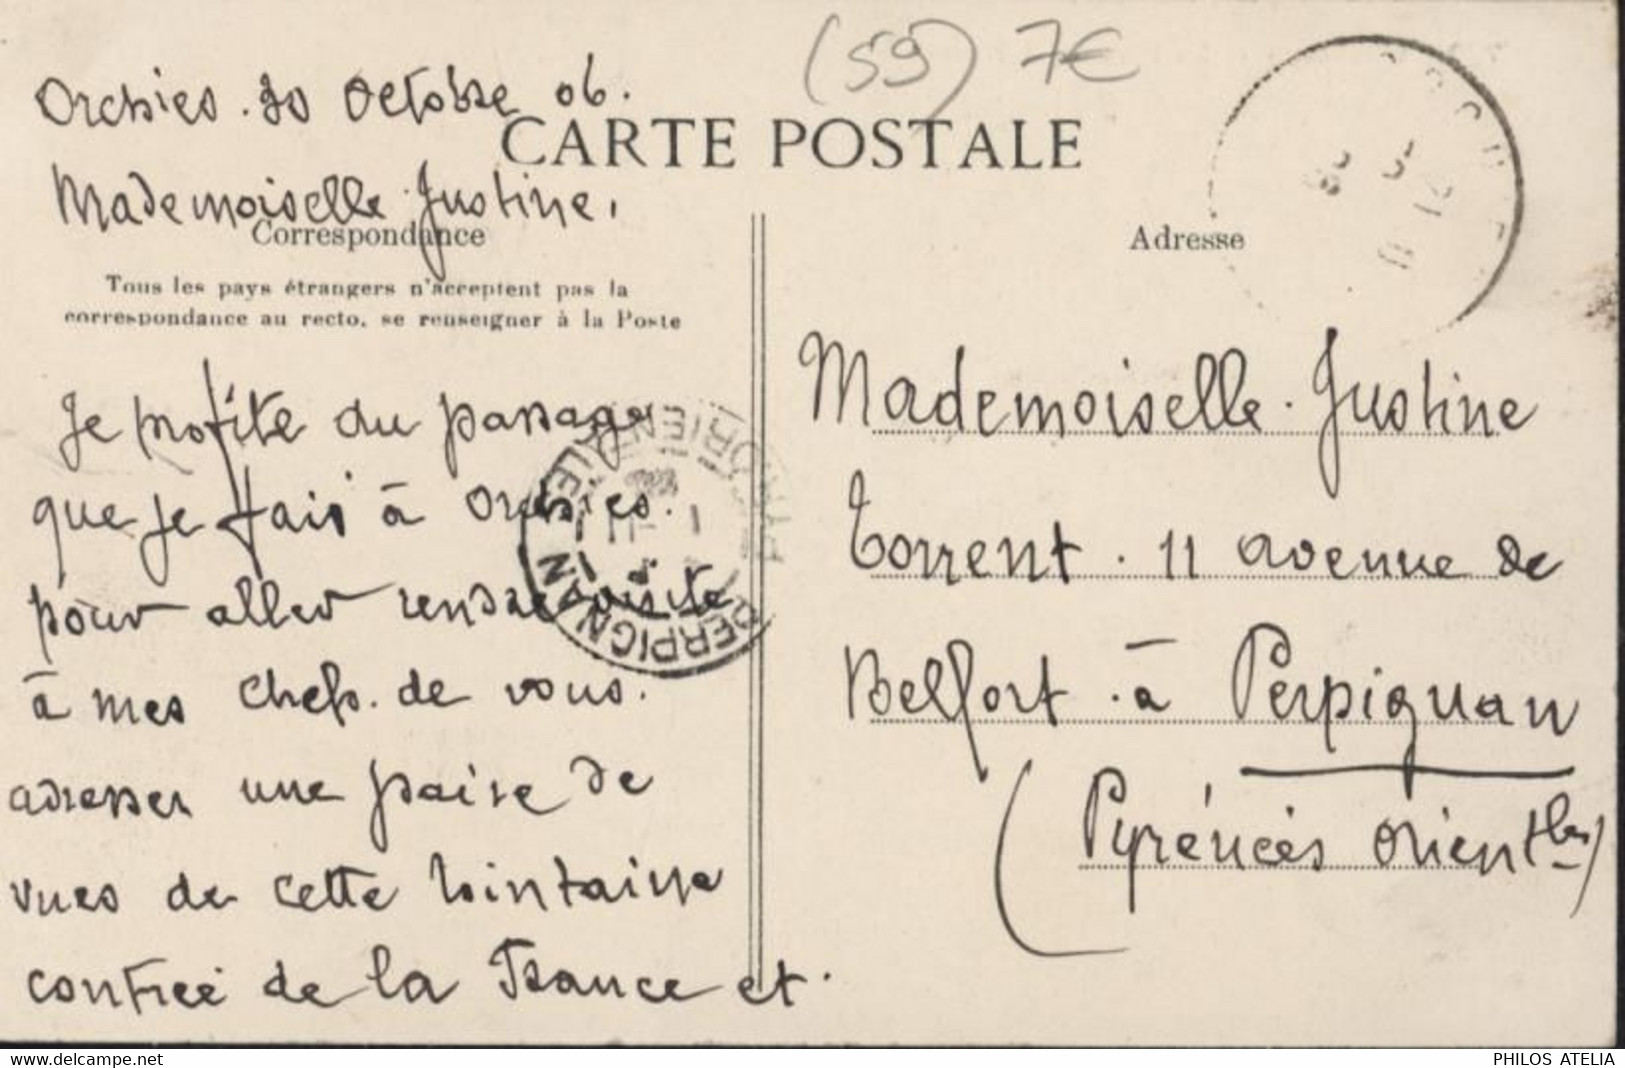 (59) 7€
Orchies. 30 Octobre 06.
CARTE POSTALE
Mademoiselle Justine,
Correspondance
Tous les pays étrangers n'acceptent pas la
correspondance au recto, se renseigner à la Poste
Je profite du passage
que je fais à Orchies.
pour aller rendre visite
à mes chefs. de vous.
adresser une paire de
vues de cette lointaine
contrée de la France et.
PERPIGNAN
PYR. ORIENTALES
Adresse
Mademoiselle. Justine
Torrent. 11 avenue de
Belfort. à Perpignan
(Pyrénées Orientles)
www.delcampe.net
PHILOS ATELIA